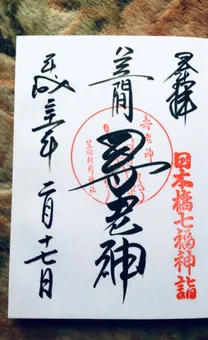 奉拝
日本橋七福神詣
笠間
寿老神
寿老神
笠間稲荷神社
平成 年 二月十七日